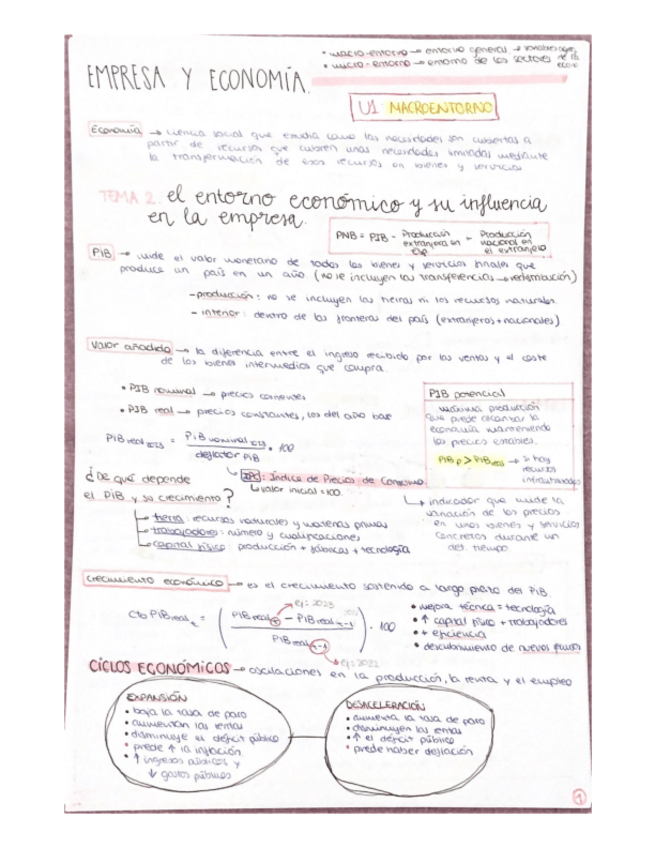 • macro-entorno → entorno general →
• micro-entorno → entorno de los sectores de la econ
EMPRESA Y ECONOMÍA.
U1 MACROENTORNO
Economía → ciencia social que estudia como las necesidades son cubiertas a
partir de recursos que cubren unas necesidades limitadas mediante
la transformación de esos recursos en bienes y servicios.
TEMA 2. el entorno económico y su influencia
en la empresa.
PNB = PIB - Producción extranjera en - Producción nacional en el extranjero
PIB → mide el valor monetario de todos los bienes y servicios finales que
produce un país en un año (no se incluyen las transferencias → redistribución)
- producción: no se incluyen las tierras ni los recursos naturales.
- interior: dentro de las fronteras del país (extranjeros + nacionales)
Valor añadido → la diferencia entre el ingreso recibido por las ventas y el coste
de los bienes intermedios que compra.
• PIB nominal → precios corrientes
• PIB real → precios constantes, los del año base
PIB real 2023 = PIB nominal 2023 / deflactor PIB · 100
PIB potencial
máxima producción
que puede alcanzar la
economía manteniendo
los precios estables.
PIBp > PIBreal → si hay
recursos
infrautilizados
IPC: Índice de Precios de Consumo
↳ valor inicial = 100.
↳ indicador que mide la
variación de los precios
en unos bienes y servicios
concretos durante un
det. tiempo
¿De qué depende
el PIB y su crecimiento?
→ tierra: recursos naturales y materias primas
→ trabajadores: número y cualificaciones
→ capital físico: producción + fábricas + tecnología
crecimiento económico → es el crecimiento sostenido a largo plazo del PIB.
cto PIB real t = ( PIB real t - PIB real t-1 / PIB real t-1 ) · 100
ej: 2023
ej: 2022
• mejora técnica = tecnología
• ↑ capital físico + trabajadores
• + eficiencia
• descubrimiento de nuevos
CICLOS ECONÓMICOS → oscilaciones en la producción, la renta y el empleo
EXPANSIÓN
• baja la tasa de paro
• aumentan las rentas
• disminuye el déficit público
• puede ↑ la inflación
• ↑ ingresos públicos y
↓ gastos públicos
DESACELERACIÓN
• aumenta la tasa de paro
• disminuyen las rentas
• ↑ el déficit público
• puede haber deflación
1